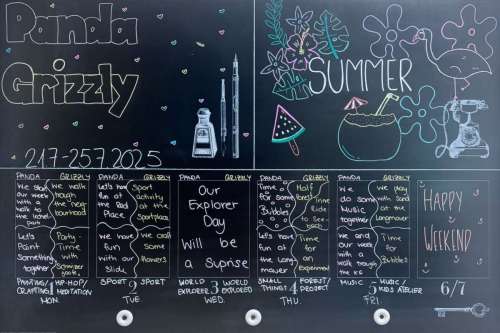 Panda
Grizzly
217-257.2025
SUMMER
PANDA GRIZZLY
We start our week with a walk to the
We walk trough the neig bourhood
Let's Paint something together
Party-Time with
PAINTING/CRAFTING 1 HIP-HOP/MEDITATION
MON.
PANDA GRIZZLY
Let's have fun at the Place
Sport activity at the Sportplace
We have fun with our Slide
We craft some
SPORT 2 SPORT
TUE
PANDA GRIZZLY
Our
Explorer
Day
Will be
a Suprise
WORLD EXPLORER 3 WORLD EXPLORER
WED.
PANDA GRIZZLY
Time for some Bubbles
Half Time Ride to See
Let's have fun at the
Time for an experiment
SMALL THINGS 4 FOREST/PROJECT
THU.
PANDA GRIZZLY
We do some Music together
We play with sand at the
We end our week with a walk trough the
Time for Bubbles
MUSIC 5 MUSIC/KIDS ATELIER
FRI.
HAPPY
WEEKEND
6/7